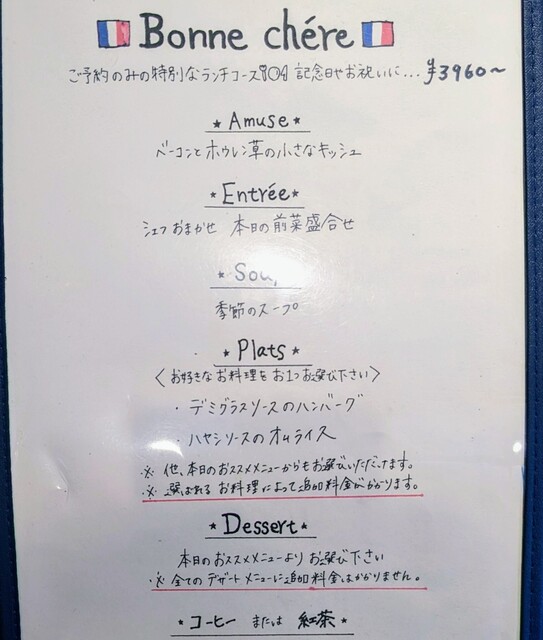 Bonne chére
ご予約のみの特別なランチコース 記念日やお祝いに… ¥3960〜
★ Amuse ★
ベーコンとホウレン草の小さなキッシュ
★ Entrée ★
シェフおまかせ 本日の前菜盛合せ
★ Sou
季節のスープ
★ Plats ★
〈お好きなお料理をお1つお選び下さい〉
・デミグラスソースのハンバーグ
・ハヤシソースのオムライス
※ 他、本日のおススメメニューからもお選びいただけます。
※ 選ばれるお料理によって追加料金がかかります。
★ Dessert ★
本日のおススメメニューよりお選び下さい
※ 全てのデザートメニューに追加料金はかかりません。
★ コーヒー または 紅茶 ★